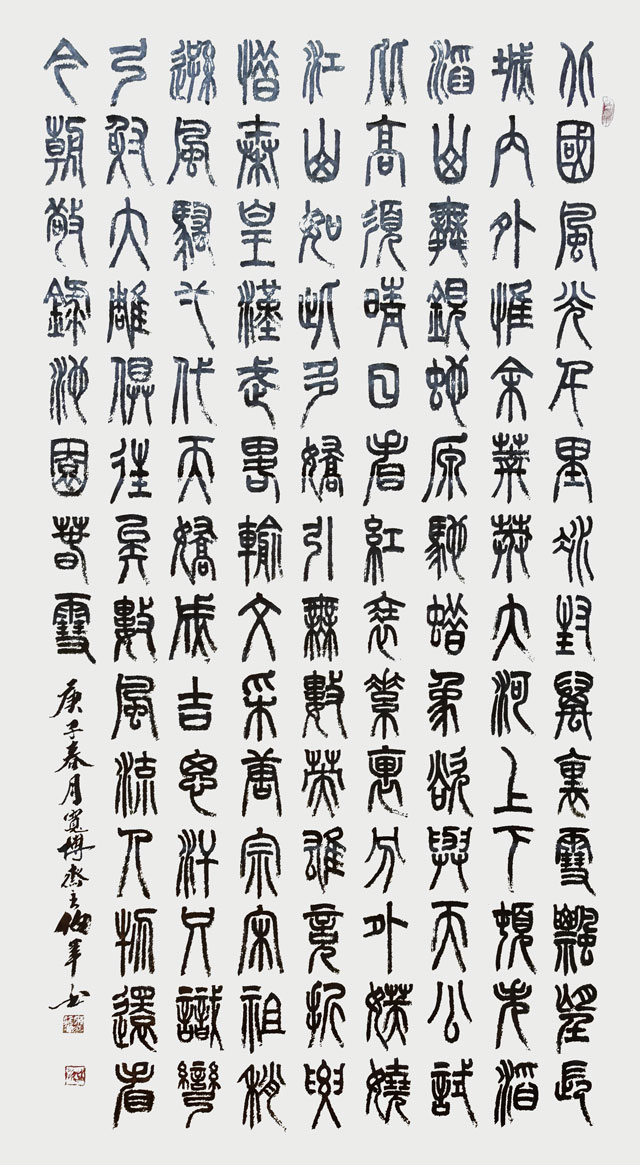 北國風光千里冰封萬裏雪飄望長
城内外惟余莽莽大河上下頓失滔
滔山舞銀蛇原馳蠟象欲與天公試
比高須晴日看紅裝素裹分外妖嬈
江山如此多嬌引無數英雄競折腰
惜秦皇漢武略輸文采唐宗宋祖稍
遜風騷一代天嬌成吉思汗只識彎
弓射大雕俱往矣數風流人物還看
今朝敬錄沁園春雪 庚子春月寬博齋主伯軍書